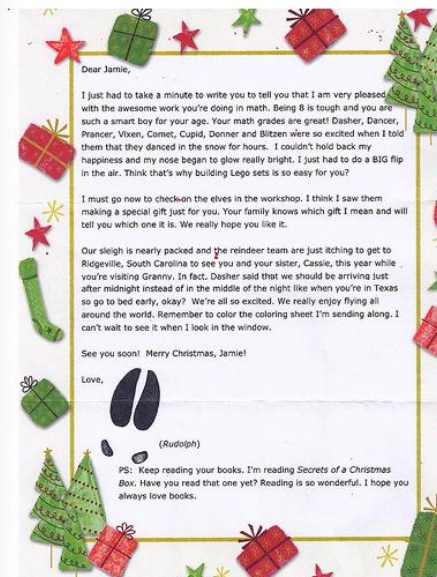 Dear Jamie,
I just had to take a minute to write you to tell you that I am very pleased
with the awesome work you're doing in math. Being 8 is tough and you are
such a smart boy for your age. Your math grades are great! Dasher, Dancer,
Prancer, Vixen, Comet, Cupid, Donner and Blitzen were so excited when I told
them that they danced in the snow for hours. I couldn't hold back my
happiness and my nose began to glow really bright. I just had to do a BIG flip
in the air. Think that's why building Lego sets is so easy for you?
I must go now to check on the elves in the workshop. I think I saw them
making a special gift just for you. Your family knows which gift I mean and will
tell you which one it is. We really hope you like it.
Our sleigh is nearly packed and the reindeer team are just itching to get to
Ridgeville, South Carolina to see you and your sister, Cassie, this year while
you're visiting Granny. In fact, Dasher said that we should be arriving just
after midnight instead of in the middle of the night like when you're in Texas
so go to bed early, okay? We're all so excited. We really enjoy flying all
around the world. Remember to color the coloring sheet I'm sending along. I
can't wait to see it when I look in the window.
See you soon! Merry Christmas, Jamie!
Love,
(Rudolph)
PS: Keep reading your books. I'm reading Secrets of a Christmas
Box. Have you read that one yet? Reading is so wonderful. I hope you
always love books.